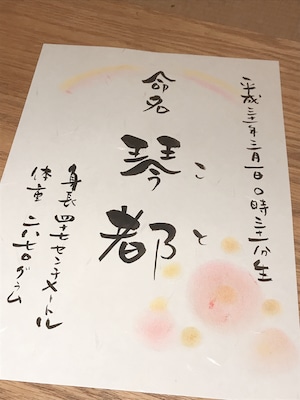 平成三十一年三月一日〇時三十一分生
命名
琴都
こと
身長 四十七センチメートル
体重 二八七〇グラム